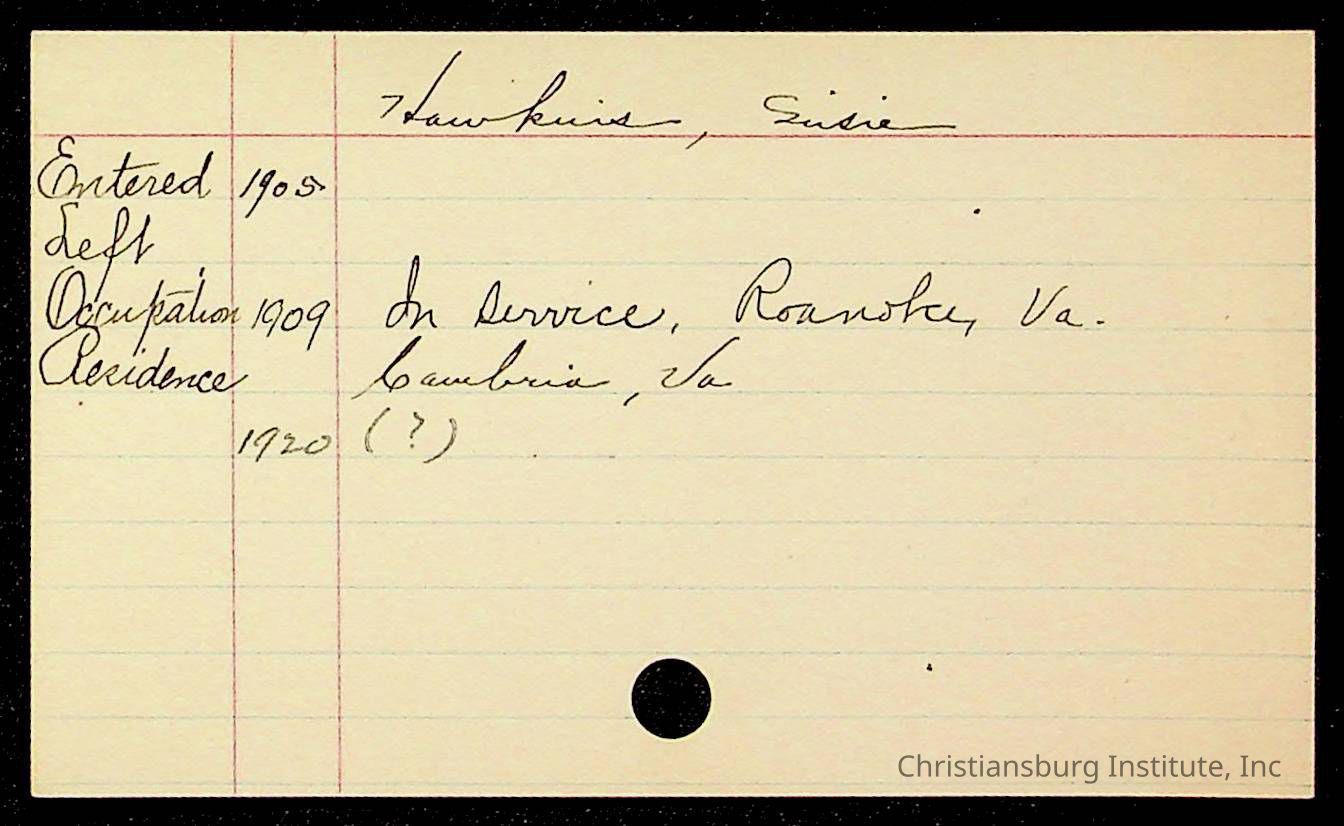 Hawkins, Susie
Entered 1905
Left
Occupation 1909 In service, Roanoke, Va.
Residence Cambria, Va
1920 (?)
Christiansburg Institute, Inc